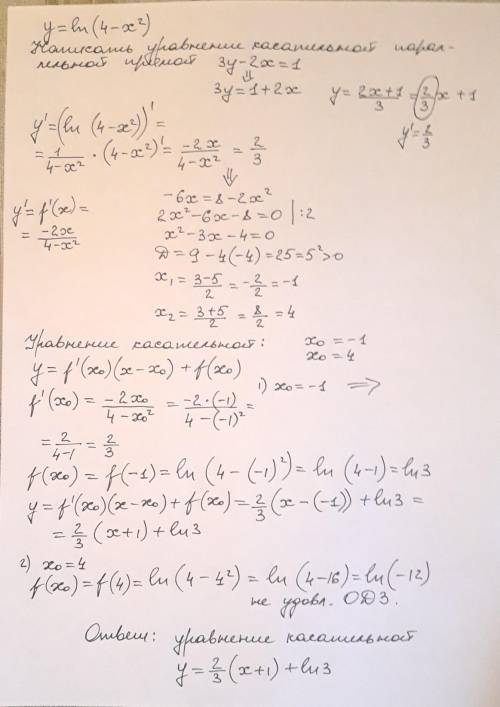 y = ln(4-x²)
Написать уравнение касательной парал-
лельной прямой 3y-2x=1
⇓
3y=1+2x y = (2x+1)/3 = 2/3 x + 1
y' = 2/3
y' = (ln(4-x²))' =
= 1/(4-x²) · (4-x²)' = -2x/(4-x²) = 2/3
⇓
-6x = 8-2x²
y' = f'(x) = 2x²-6x-8=0 |:2
= -2x/(4-x²) x²-3x-4=0
D = 9-4(-4)=25=5²>0
x₁ = (3-5)/2 = -2/2 = -1
x₂ = (3+5)/2 = 8/2 = 4
Уравнение касательной: x₀ = -1
x₀ = 4
y = f'(x₀)(x-x₀) + f(x₀)
1) x₀ = -1 ⇒
f'(x₀) = -2x₀/(4-x₀²) = -2·(-1)/(4-(-1)²) =
= 2/(4-1) = 2/3
f(x₀) = f(-1) = ln(4-(-1)²) = ln(4-1) = ln3
y = f'(x₀)(x-x₀) + f(x₀) = 2/3 (x-(-1)) + ln3 =
= 2/3 (x+1) + ln3
2) x₀ = 4
f(x₀) = f(4) = ln(4-4²) = ln(4-16) = ln(-12)
не удовл. ОДЗ.
Ответ: уравнение касательной
y = 2/3 (x+1) + ln3